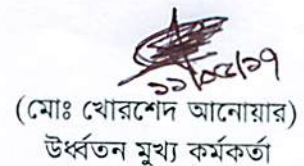 ১১/০৫/১৭
(মোঃ খোরশেদ আনোয়ার)
উর্ধ্বতন মুখ্য কর্মকর্তা